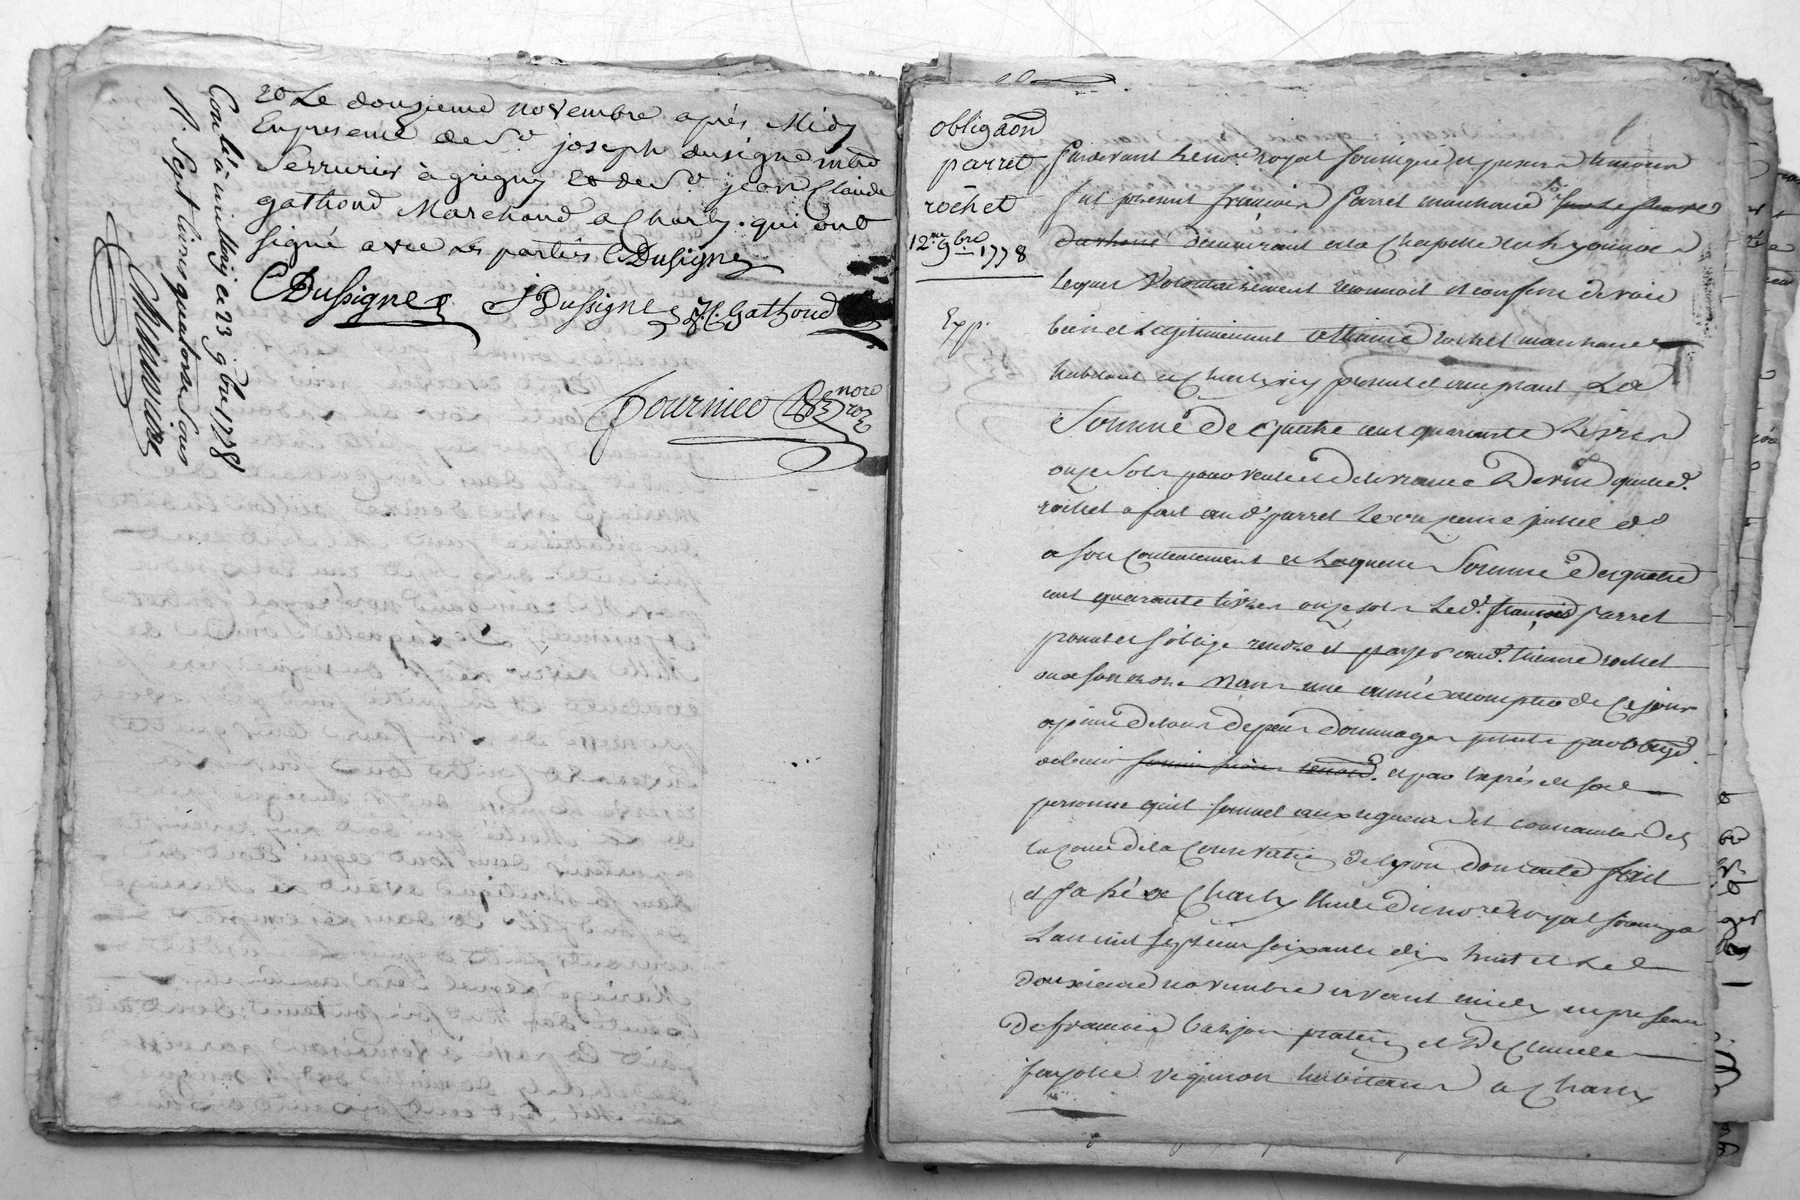 & Le douzieme novembre après Midy
En presence de Sr. joseph dusigne mtre
Serrurier à grigny & de Sr. jean Claude
gathoud Marchand a Charly. qui ont
signé avec les parties C Dusigne
C Dussigne J Dussigne J. C. Gathoud
fournier
nore
roz
Conlé à millery ce 23 9bre 1778
R. Sept livres quatorze sous
obligaön
parret
rochet
12me 9bre 1778
Exp.
Pardevant le nore. royal soussigné et presens temoins
fut present françois parret marchand
demeurant a la Chapelle en Lyonnois
lequel Volontairement reconnoit et confesse devoir
bien et legitimement a etienne rochet marchand
habitant a Charly icy present et acceptant La
Somme de quatre cent quarante Livres
onze sols pour vente et delivrance De vin que led.
rochet a fait aud. parret
a son contentement et laquelle Somme de quatre
cent quarante livres onze sols Led. françois parret
promet et s'oblige rendre et payer aud. etienne rochet
ou a son ordre dans une année a compter de Ce jour
a peine de tous depens dommages
et par exprès et sa
personne qu'il soumet aux rigueurs et contraintes de
la cour de la Conservation de Lyon dont acte fait
et passé a Charly Etude du nore. royal soussigné
L'an mil sept cent soixante dix huit et Le
douzieme novembre avant midy en presence
De françois et De Claude
fayolle vigneron habitans a Charly